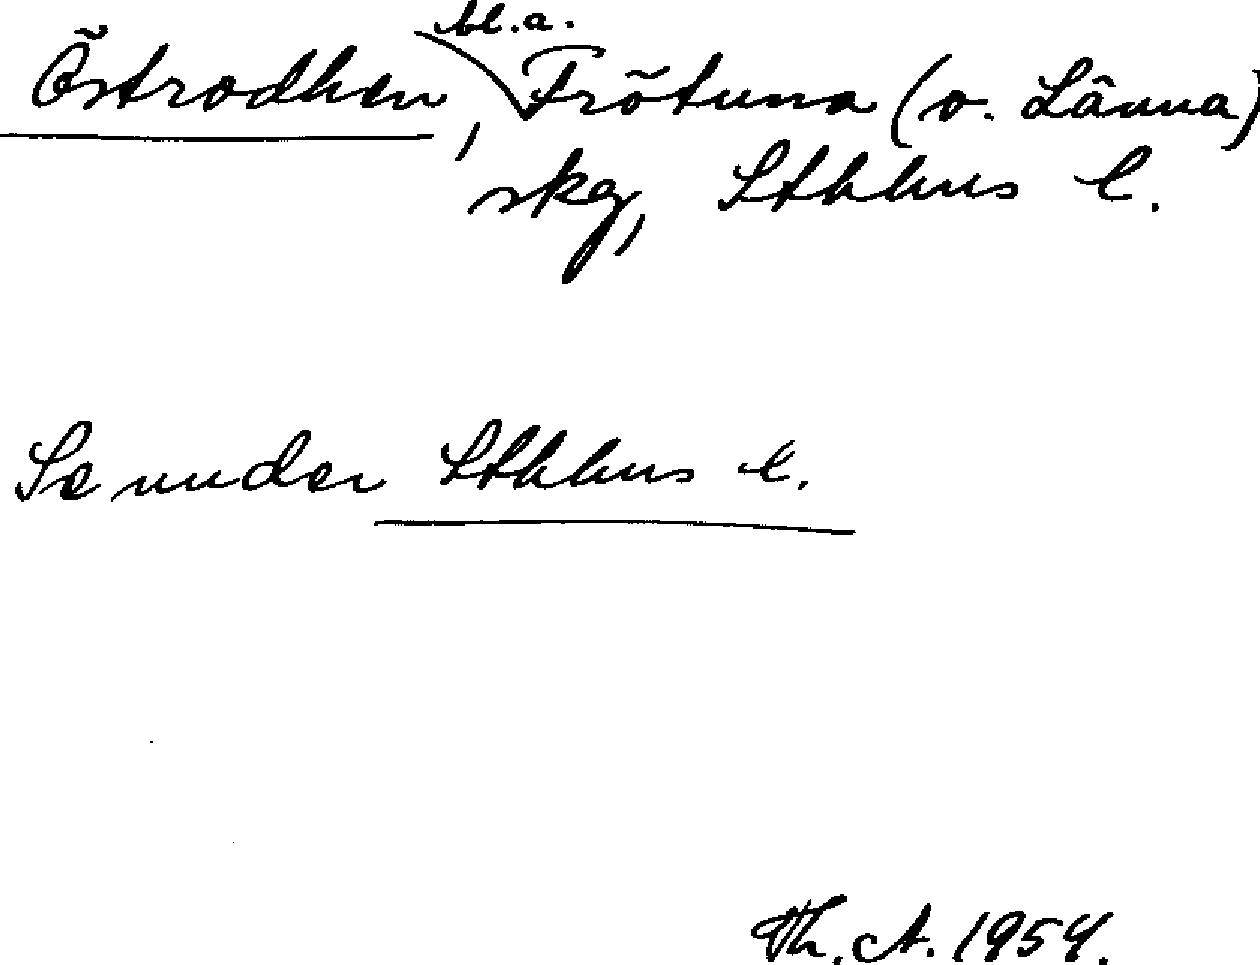 Östrodhen, bl.a. Frötuna (o. Länna)
skg, Sthlms l.
Se under Sthlms l.
Th. A. 1954.